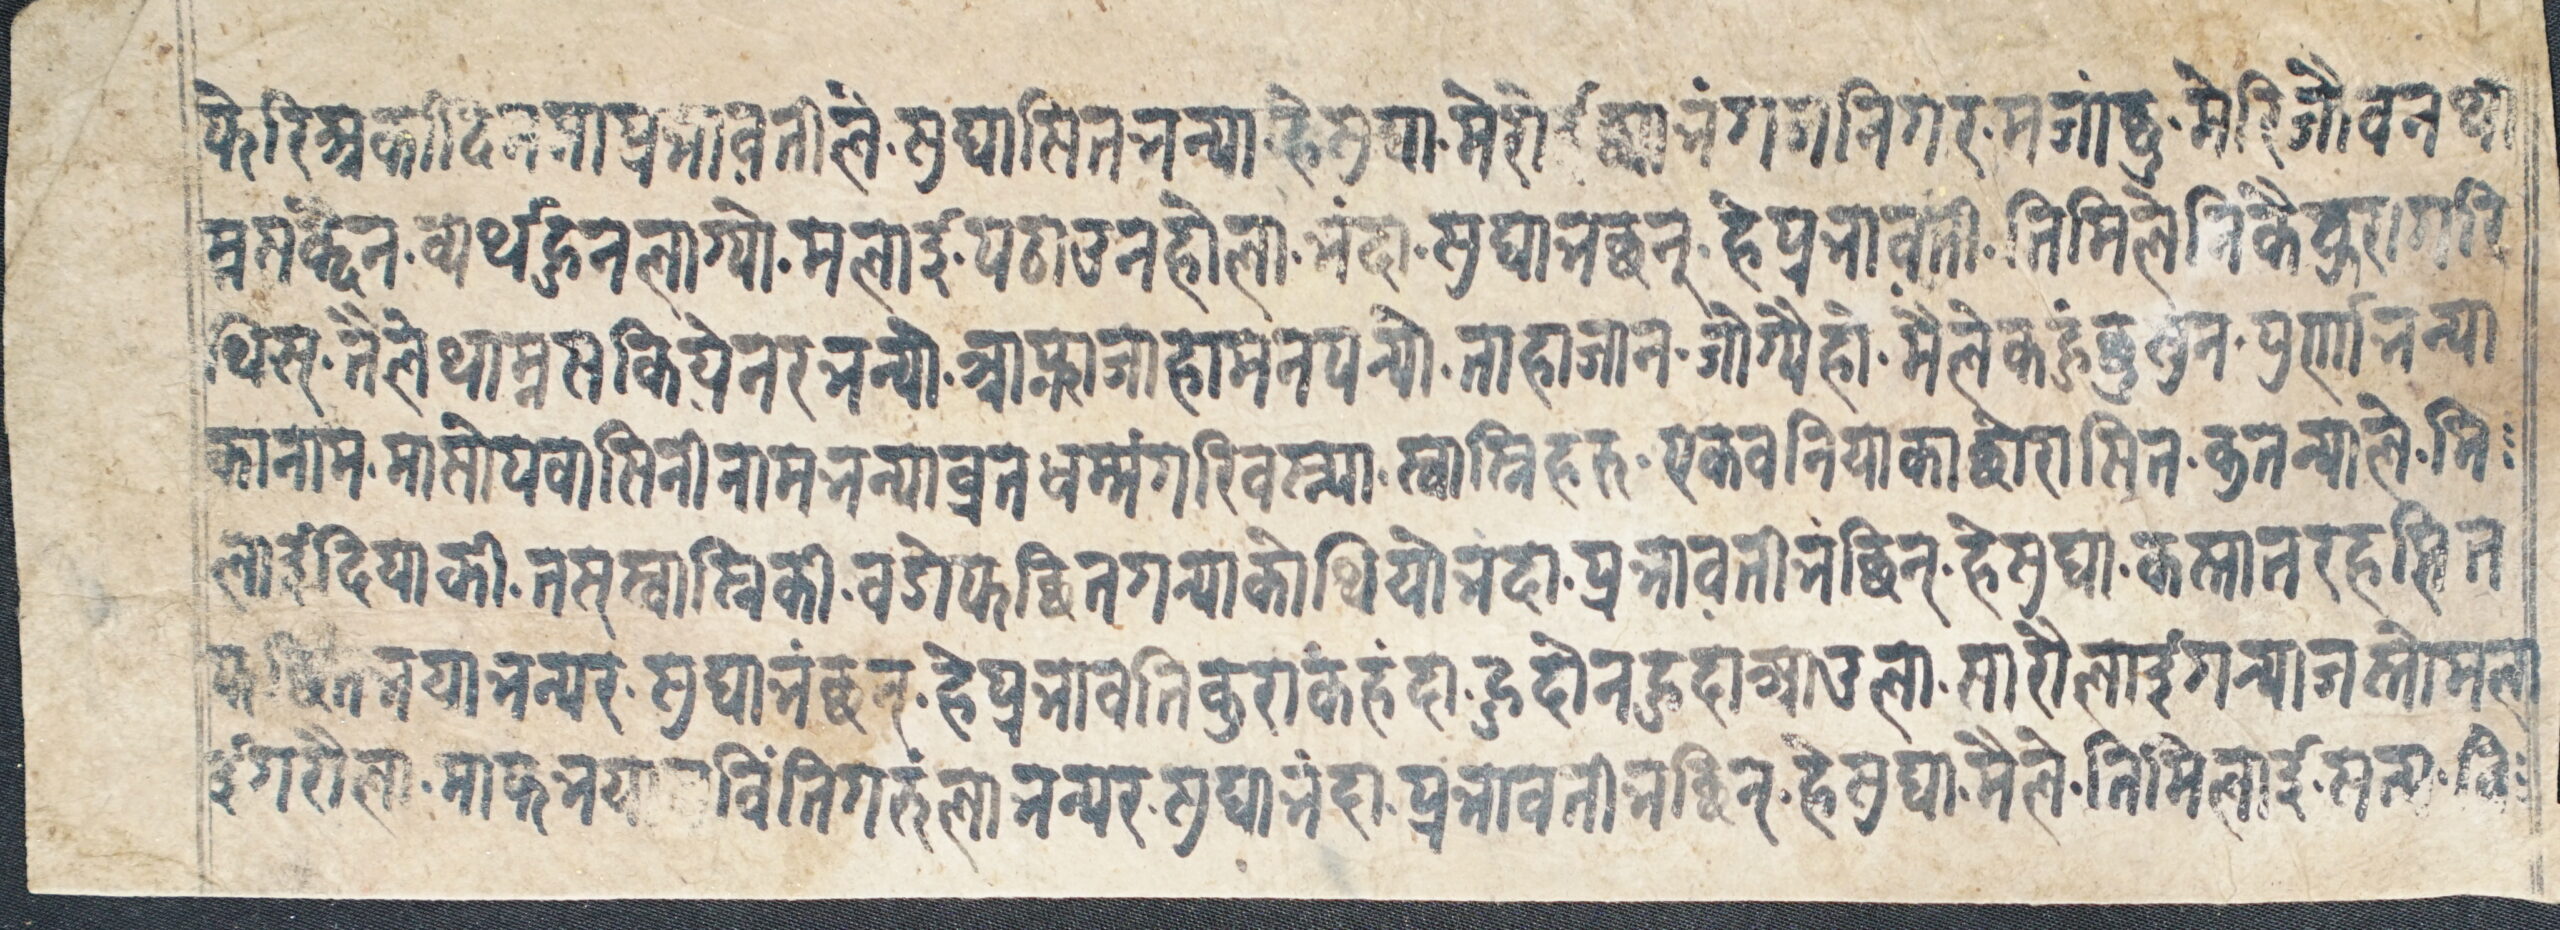 फेरिअर्कादिनमाप्रभावतीले. सुघासितभन्या. हेसुघा. मेरोईछ्याभंगगनिगर. मजांछु. मेरिजौवनथा
म्नसक्दैन. व्यर्थहुनलाग्यो. मलाइ. पठाउनहोला. भंदा. सुघाभंछन्. हेप्रभावती. तिमिलेनिकैकुरागरि
थिस्. तैलेथाम्नसकियेनरभन्यो. आफ्नाजाहामनपन्यो. ताहाजान. जोग्यैहो. मैलेकहंछुसुन. पुर्णाभन्या
कानाम. मासोपवासिनीनामभन्याव्रतधर्मंगरिवस्न्या. स्वाम्निहरु. एकवनियाकाछोरासित. कुतन्याले. मि
लाइदियाकी. तस्स्वाम्निकी. वडोफछितगन्याकोथियोभंदा. प्रभावतीभंछिन्. हेसुघा. कस्तातरहसित
फछितभयाभन्यर. सुघाभंछन्. हेप्रभावतिकुराकंहंदा. हुदोनहुदाआउला. सारोलाइगन्याजस्तोमला
इगरौला. माफभया विंतिगरुंलाभन्यर. सुघाभंदा. प्रभावतीभंछिन्. हेसुघा. मैले. तिमिलाई. सत्य.